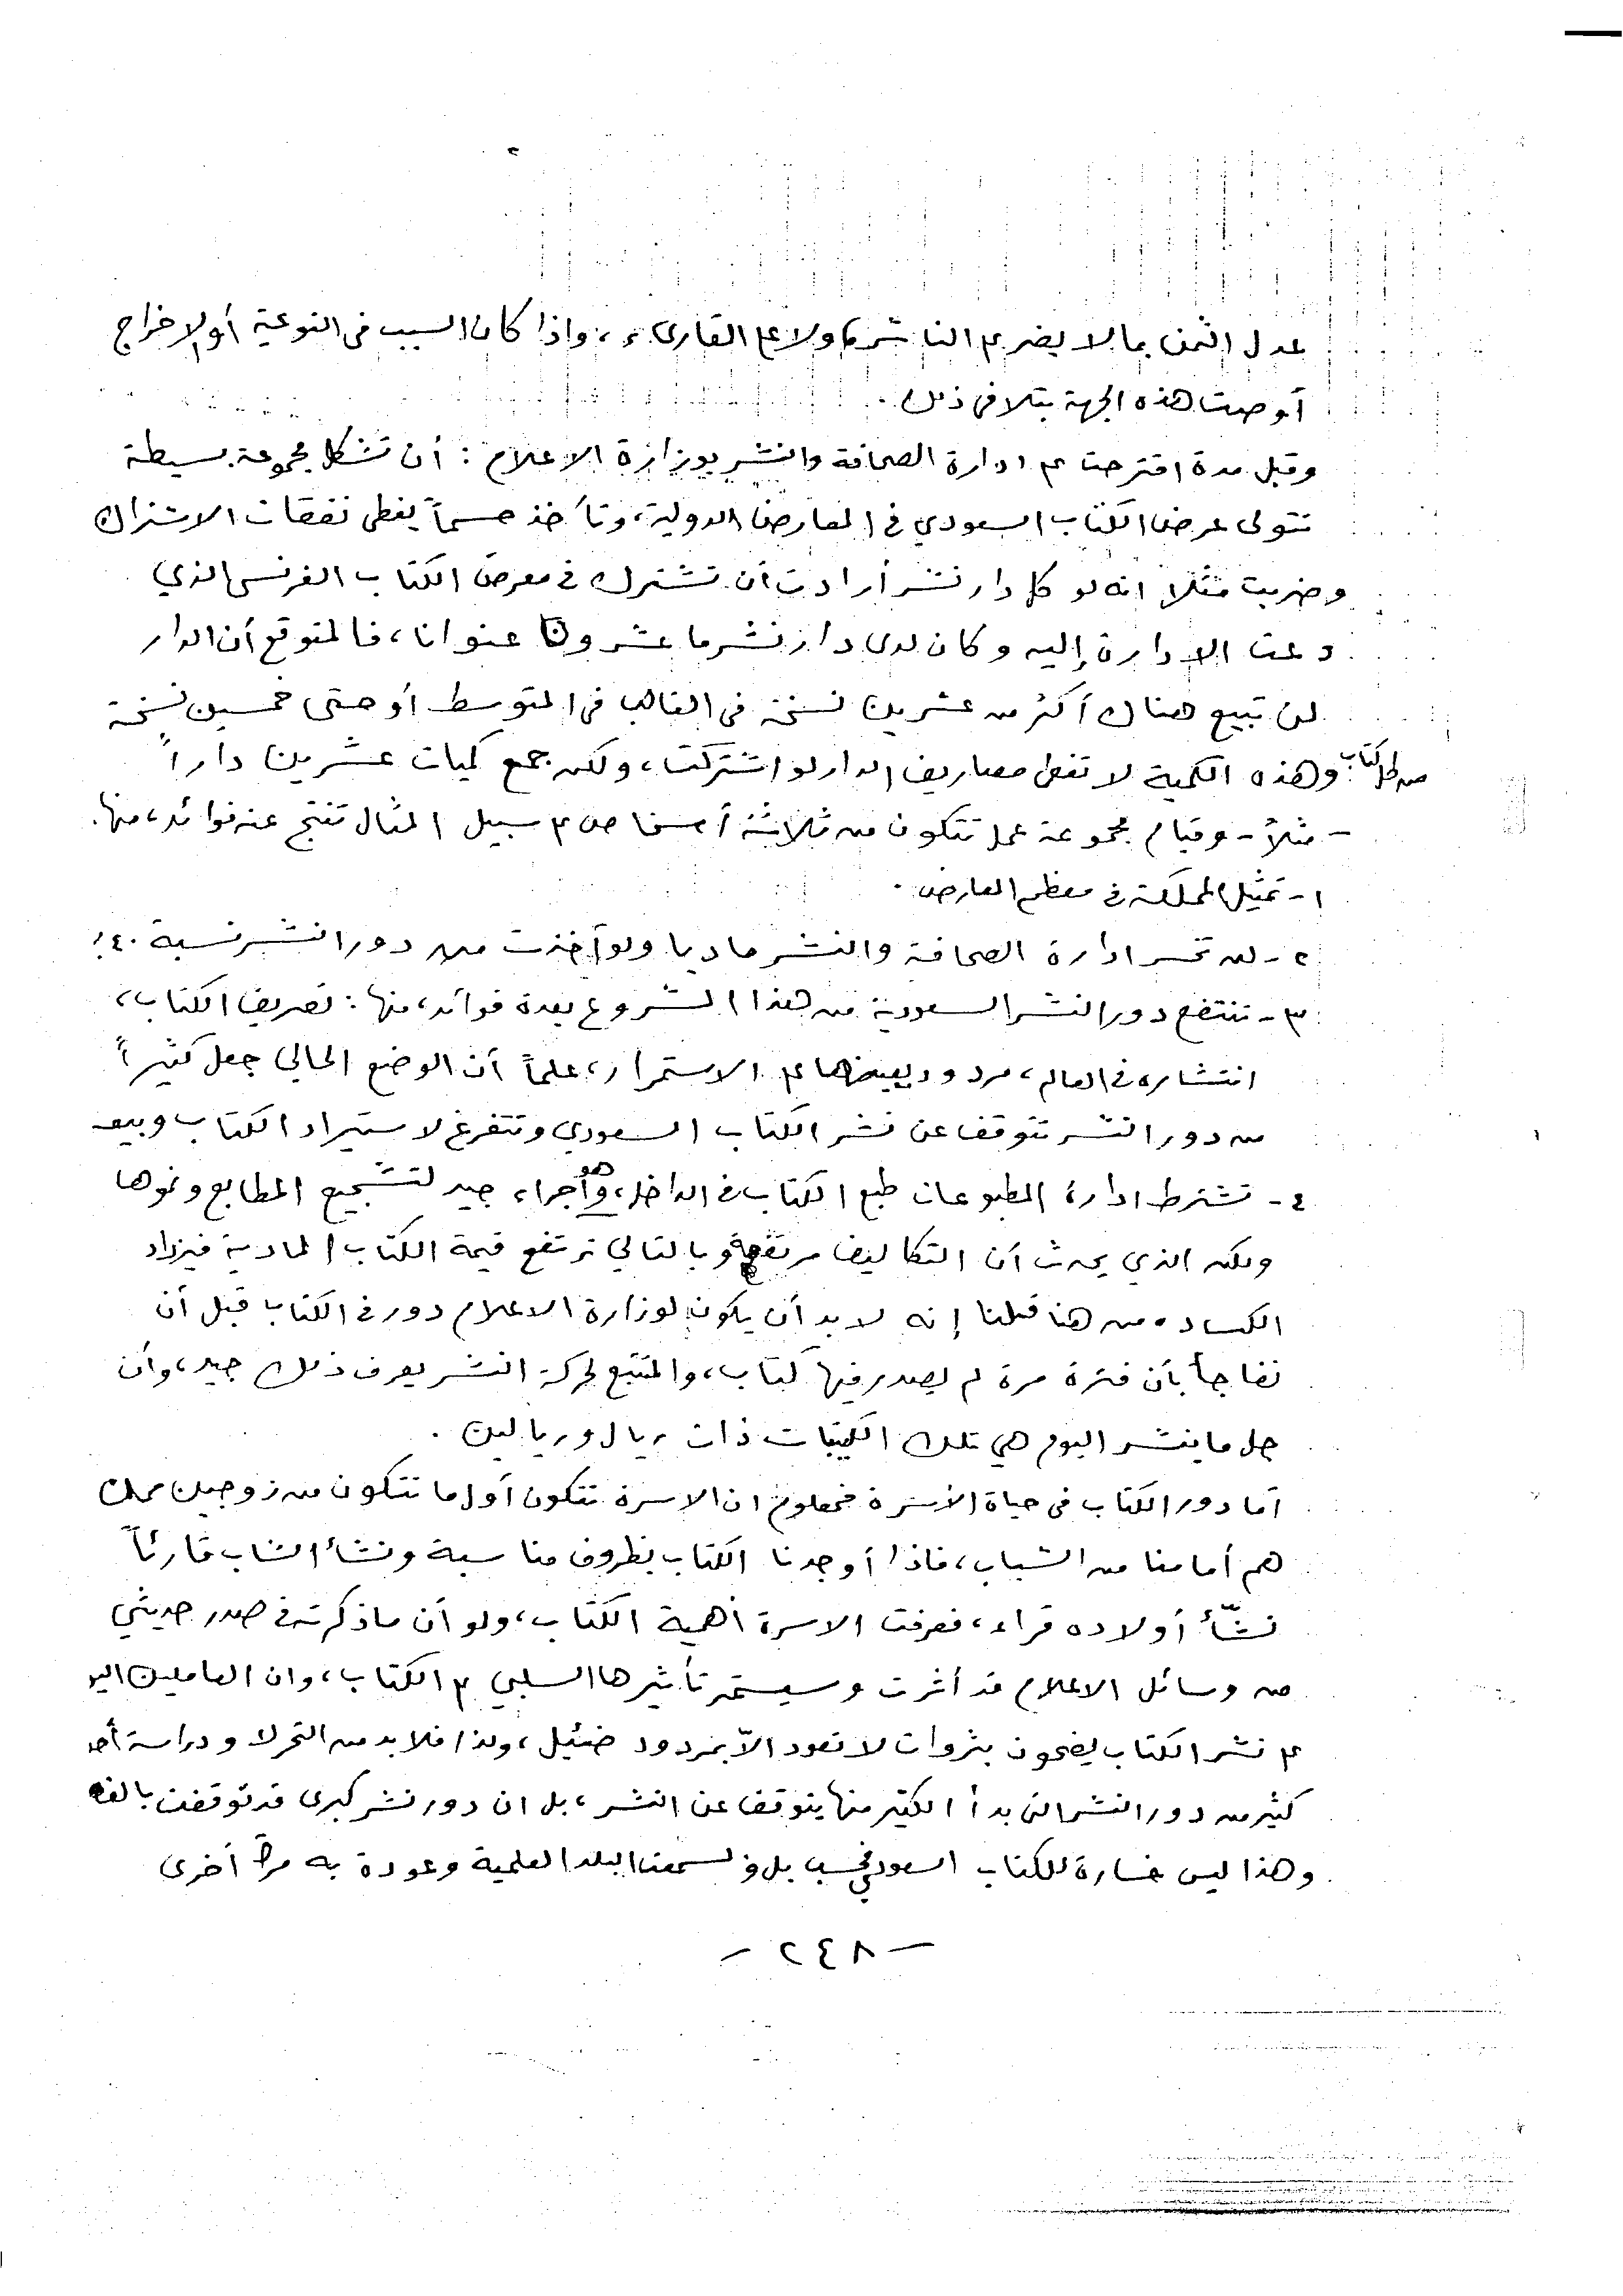 عدل الثمن بما لا يضر بم الناشر ولا على القارىء، واذا كان السبب فى النوعية أو الاخراج
أوصت هذه الجهة بتلافى ذلك .
وقبل مدة اقترحت على ادارة الصحافة والنشر بوزارة الاعلام : أن تشكل مجموعة بسيطة
تتولى عرض الكتاب السعودي في المعارض الدولية، وتأخذ حسماً يغطى نفقات الاشتراك
وضربت مثلا انه لو كل دار نشر أرادت أن تشترك في معرض الكتاب الفرنسى الذي
دعت الادارة إليه وكان لدى دار نشر ما عشرون عنوانا، فالمتوقع أن الدار
لن تبيع هناك أكثر من عشرين نسخة فى الغالب فى المتوسط أو حتى خمسين نسخة
من كل كتاب وهذه الكمية لا تغطى مصاريف الدار لو اشتركت، ولكن جمع كميات عشرين داراً
- مثلاً - وقيام مجموعة عمل تتكون من ثلاثة أشخاص على سبيل المثال تنتج عنه فوائد، منها.
١ - تمثيل المملكة في معظم المعارض .
٢ - لن تخسر ادارة الصحافة والنشر ماديا ولو أخذت من دور النشر نسبة ٤٠٪
٣ - تنتفع دور النشر السعودية من هذا المشروع بعدة فوائد، منها : تصريف الكتاب،
انتشاره في العالم، مردود يعينها على الاستمرار، علماً أن الوضع الحالي جعل كثيراً
من دور النشر تتوقف عن نشر الكتاب السعودي وتتفرغ لاستيراد الكتاب وبيعه
٤ - تشترط ادارة المطبوعات طبع الكتاب في الداخل، وهو أجراء جيد لتشجيع المطابع ونموها
ولكن الذي يحدث أن التكاليف مرتفعة وبالتالي ترتفع قيمة الكتاب المادية فيزداد
الكساد، من هنا قلنا إنه لا بد أن يكون لوزارة الاعلام دور في الكتاب قبل أن
نفاجأ بأن فترة مرة لم يصدر فيها كتاب، والمتتبع لحركة النشر يعرف ذلك جيد، وأن
جل ما ينشر اليوم هي تلك الكتيبات ذات ريال وريالين .
أما دور الكتاب فى حياة الأسرة فمعلوم ان الاسرة تتكون أول ما تتكون من زوجين
هم أمامنا من الشباب، فاذا أوجدنا الكتاب بظروف مناسبة ونشأ الشاب قارئاً
نشّأ أولاده قراء، فعرفت الاسرة أهمية الكتاب، ولو أن ما ذكرته في صدر حديثي
من وسائل الاعلام قد أثرت وسيستمر تأثيرها السلبي على الكتاب، وان العاملين اليو
على نشر الكتاب يضحون بثروات لا تعود الاّ بمردود ضئيل، ولذا فلا بد من التحرك ودراسة أحو
كثير من دور النشر التى بدأ الكثير منها يتوقف عن النشر، بل ان دور نشر كبرى قد توقفت بالفعل
وهذا ليس خسارة للكتاب السعودي فحسب بل و لسمعة البلد العلمية وعودة به مرة أخرى
- ٢٤٨ -